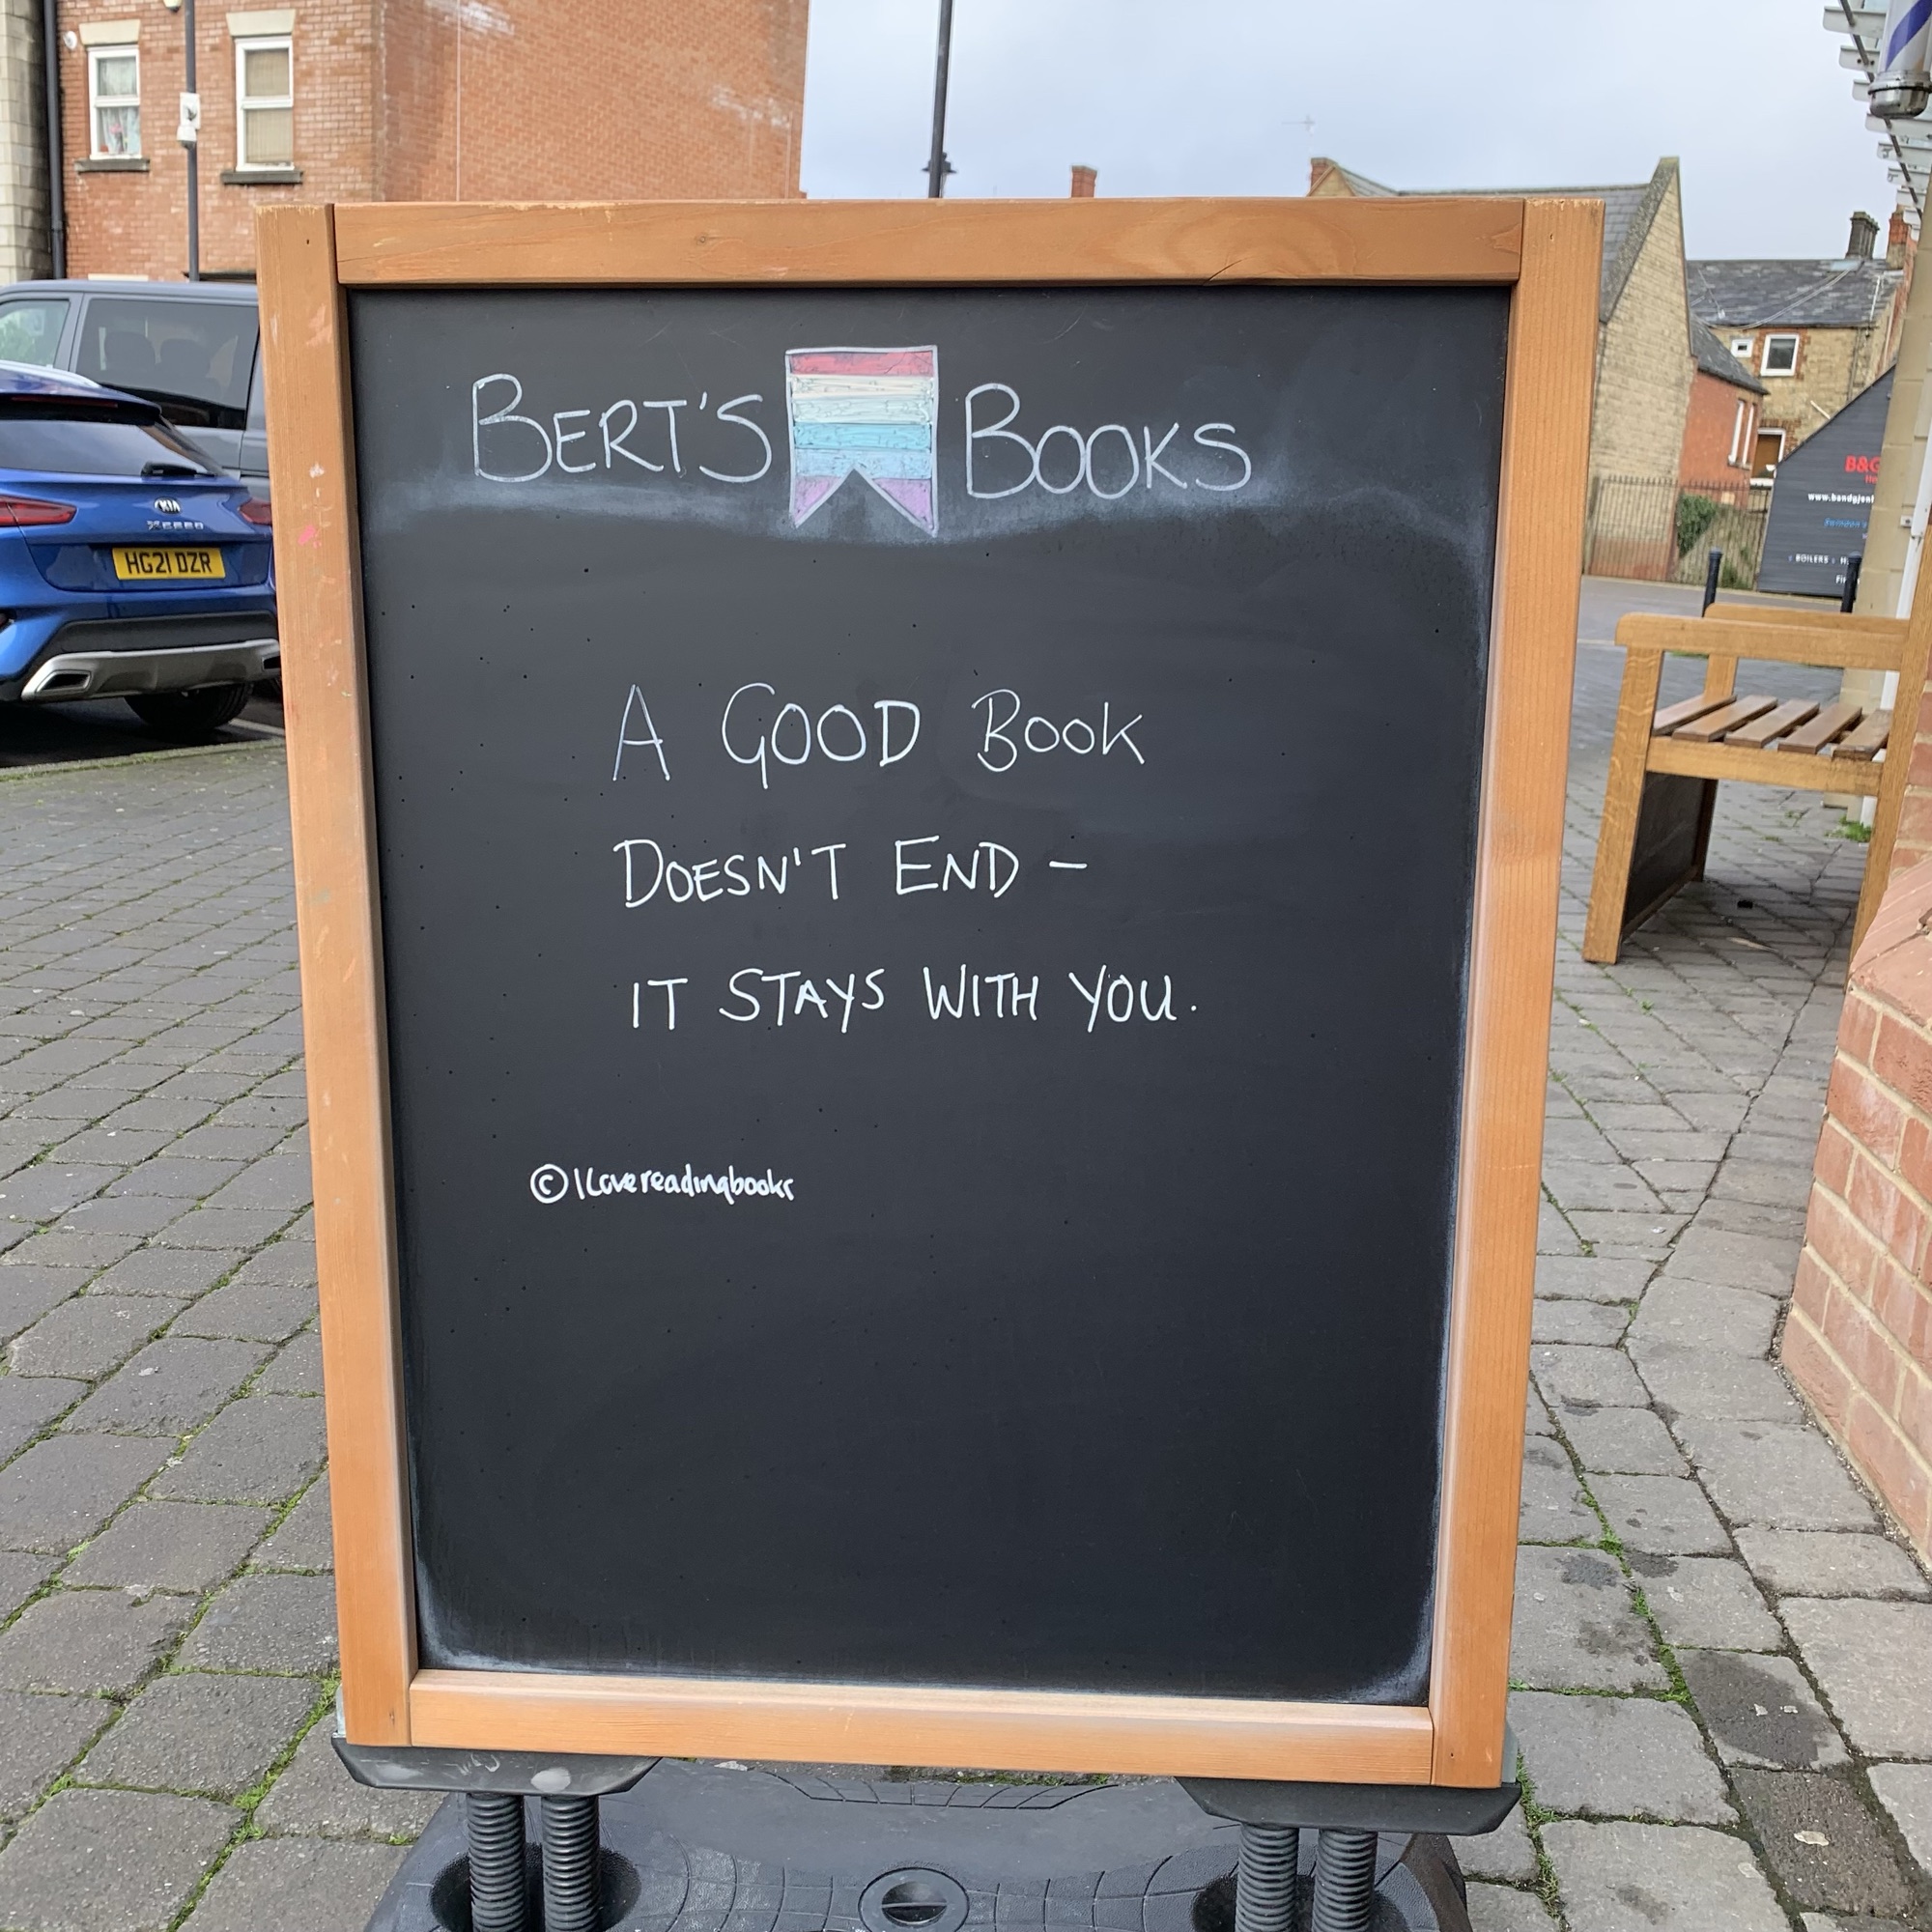 BERT'S BOOKS
A GOOD BOOK
DOESN'T END –
IT STAYS WITH YOU.
© Ilovereadingbooks
KIA
XCEED
HG21 DZR
BOILERS